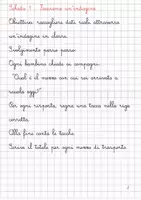 Scheda 1 - Facciamo un'indagine
Obiettivo: raccogliere dati reali attraverso
un'indagine in classe.
Svolgimento passo passo:
Ogni bambino chiede ai compagni:
"Qual è il mezzo con cui sei arrivato a
scuola oggi?"
Per ogni risposta, segna una tacca nella riga
corretta.
Alla fine conta le tacche.
Scrivi il totale per ogni mezzo di trasporto.